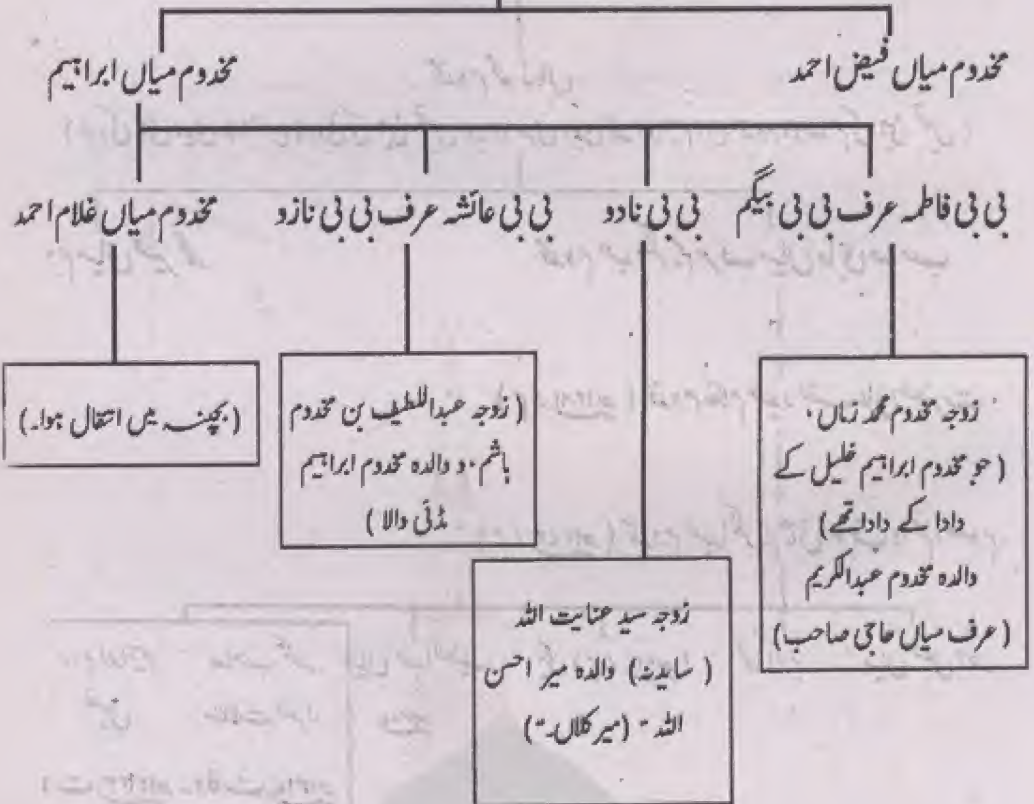 مخدوم میاں فیض احمد
مخدوم میاں ابراہیم
بی بی فاطمہ عرف بی بی بیگم
بی بی نادو
بی بی عائشہ عرف بی بی نازو
مخدوم میاں غلام احمد
زوجہ مخدوم محمد زماں۰
(جو مخدوم ابراہیم خلیل کے
دادا کے دادا تھے)
والدہ مخدوم عبدالکریم
(عرف میاں حاجی صاحب)
زوجہ سید عنایت اللہ
( سایدنہ) والدہ میر احسن
اللہ ۔ (میر کلاں۔)
( زوجہ عبداللطیف بن مخدوم
ہاشم۰ و والدہ مخدوم ابراہیم
مڈئی والا )
(بچپنہ میں انتقال ہوا۔)